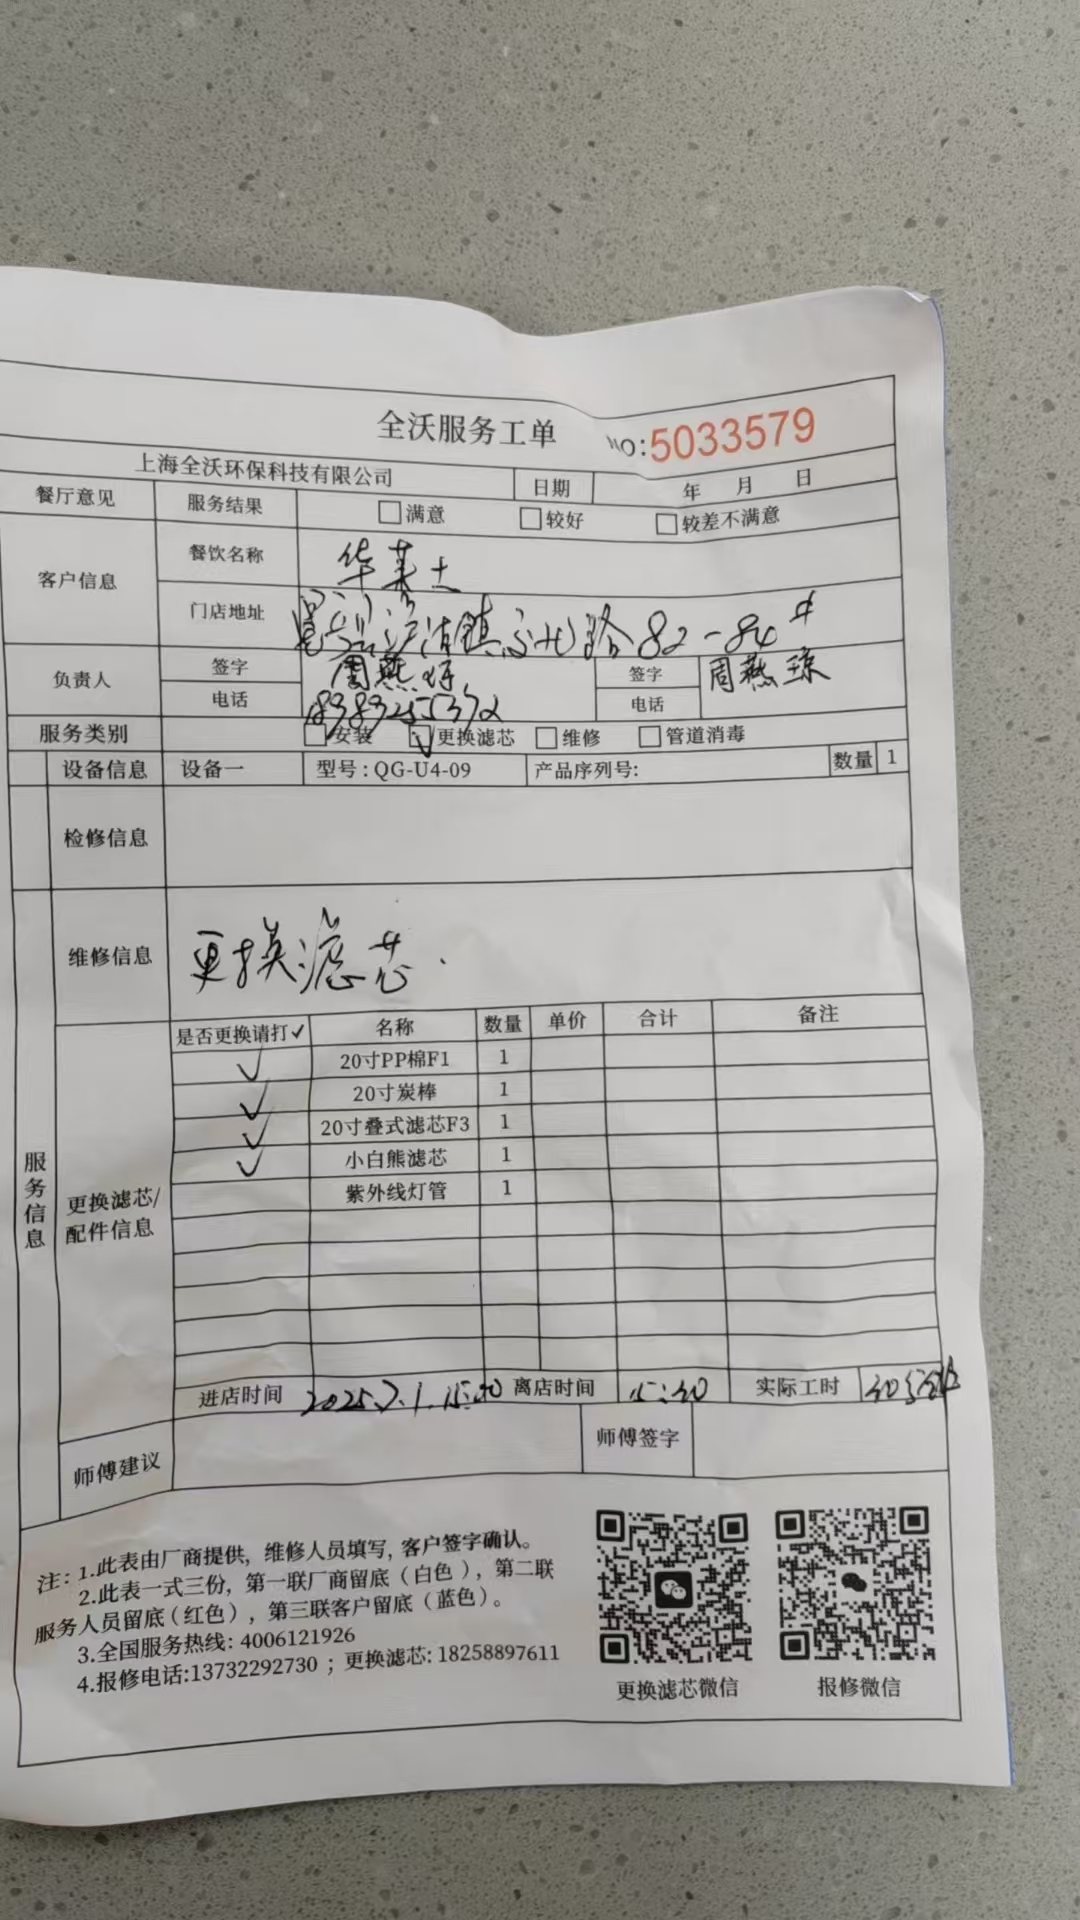 全沃服务工单
NO:5033579
上海全沃环保科技有限公司 日期 年 月 日
餐厅意见 服务结果 满意 较好 较差不满意
客户信息 餐饮名称 华莱士
门店地址 镇 路82-84#
负责人 签字 周燕琼 签字 周燕琼
电话 18383255372 电话
服务类别 安装 ✓更换滤芯 维修 管道消毒
设备信息 设备一 型号:QG-U4-09 产品序列号: 数量 1
检修信息
维修信息 更换滤芯.
服务信息
更换滤芯/
配件信息
是否更换请打✓ 名称 数量 单价 合计 备注
✓ 20寸PP棉F1 1
✓ 20寸炭棒 1
✓ 20寸叠式滤芯F3 1
✓ 小白熊滤芯 1
紫外线灯管 1
进店时间 2025.7.1.15:00 离店时间 15:30 实际工时 30分钟
师傅建议 师傅签字
注:1.此表由厂商提供,维修人员填写,客户签字确认。
2.此表一式三份,第一联厂商留底(白色),第二联
服务人员留底(红色),第三联客户留底(蓝色)。
3.全国服务热线:4006121926
4.报修电话:13732292730;更换滤芯:18258897611
更换滤芯微信 报修微信